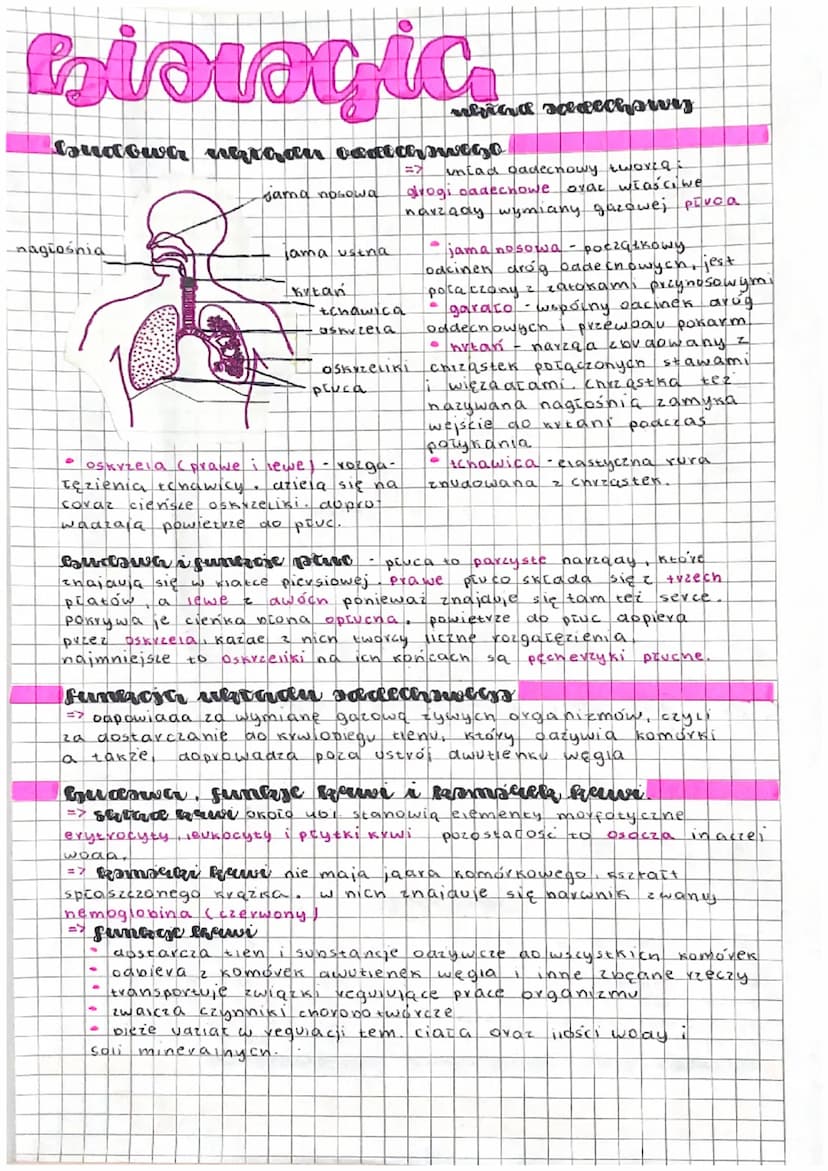 biologia
układ oddechowy
budowa układu oddechowego
=> układ oddechowy tworzą:
drogi oddechowe oraz właściwe
narządy wymiany gazowej płuca
jama nosowa
nagłośnia
jama ustna
krtań
tchawica
oskrzela
oskrzeliki
płuca
• jama nosowa - początkowy
odcinek dróg oddechowych, jest
połączony z zatokami przynosowymi
• gardło - wspólny odcinek dróg
oddechowych i przewodu pokarm
• krtań - narząd zbudowany z
chrząstek połączonych stawami
i więzadłami. Chrząstka też
nazywana nagłośnią zamyka
wejście do krtani podczas
połykania
• tchawica - elastyczna rura
zbudowana z chrząstek.
• oskrzela (prawe i lewe) - rozga-
łęzienia tchawicy. dzielą się na
coraz cieńsze oskrzeliki. dopro-
wadzają powietrze do płuc.
Budowa i funkcje płuc - płuca to parzyste narządy, które
znajdują się w klatce piersiowej. Prawe płuco składa się z trzech
płatów, a lewe z dwóch ponieważ znajduje się tam też serce.
Pokrywa je cienka błona opłucna. powietrze do płuc dopiera
przez oskrzela, każde z nich tworzy liczne rozgałęzienia,
najmniejsze to oskrzeliki na ich końcach są pęcherzyki płucne.
funkcja układu oddechowego
=> odpowiada za wymianę gazową żywych organizmów, czyli
za dostarczanie do krwiobiegu tlenu, który odżywia komórki
a także, doprowadza poza ustrój dwutlenku węgla
Budowa, funkcje krwi i komórek krwi.
=> skład krwi około ubl. stanowią elementy morfotyczne
erytrocyty, leukocyty i płytki krwi pozostałość to osocza inaczej
woda.
=> komórki krwi nie mają jądra komórkowego, kształt
spłaszczonego krążka. w nich znajduje się barwnik zwany
hemoglobina (czerwony)
=> funkcje krwi
• dostarcza tlen i substancje odżywcze do wszystkich komórek
• odbiera z komórek dwutlenek węgla i inne zbędne rzeczy
• transportuje związki regulujące pracę organizmu
• zwalcza czynniki chorobotwórcze
• bieże udział w regulacji tem. ciała oraz ilości wody i
soli mineralnych.